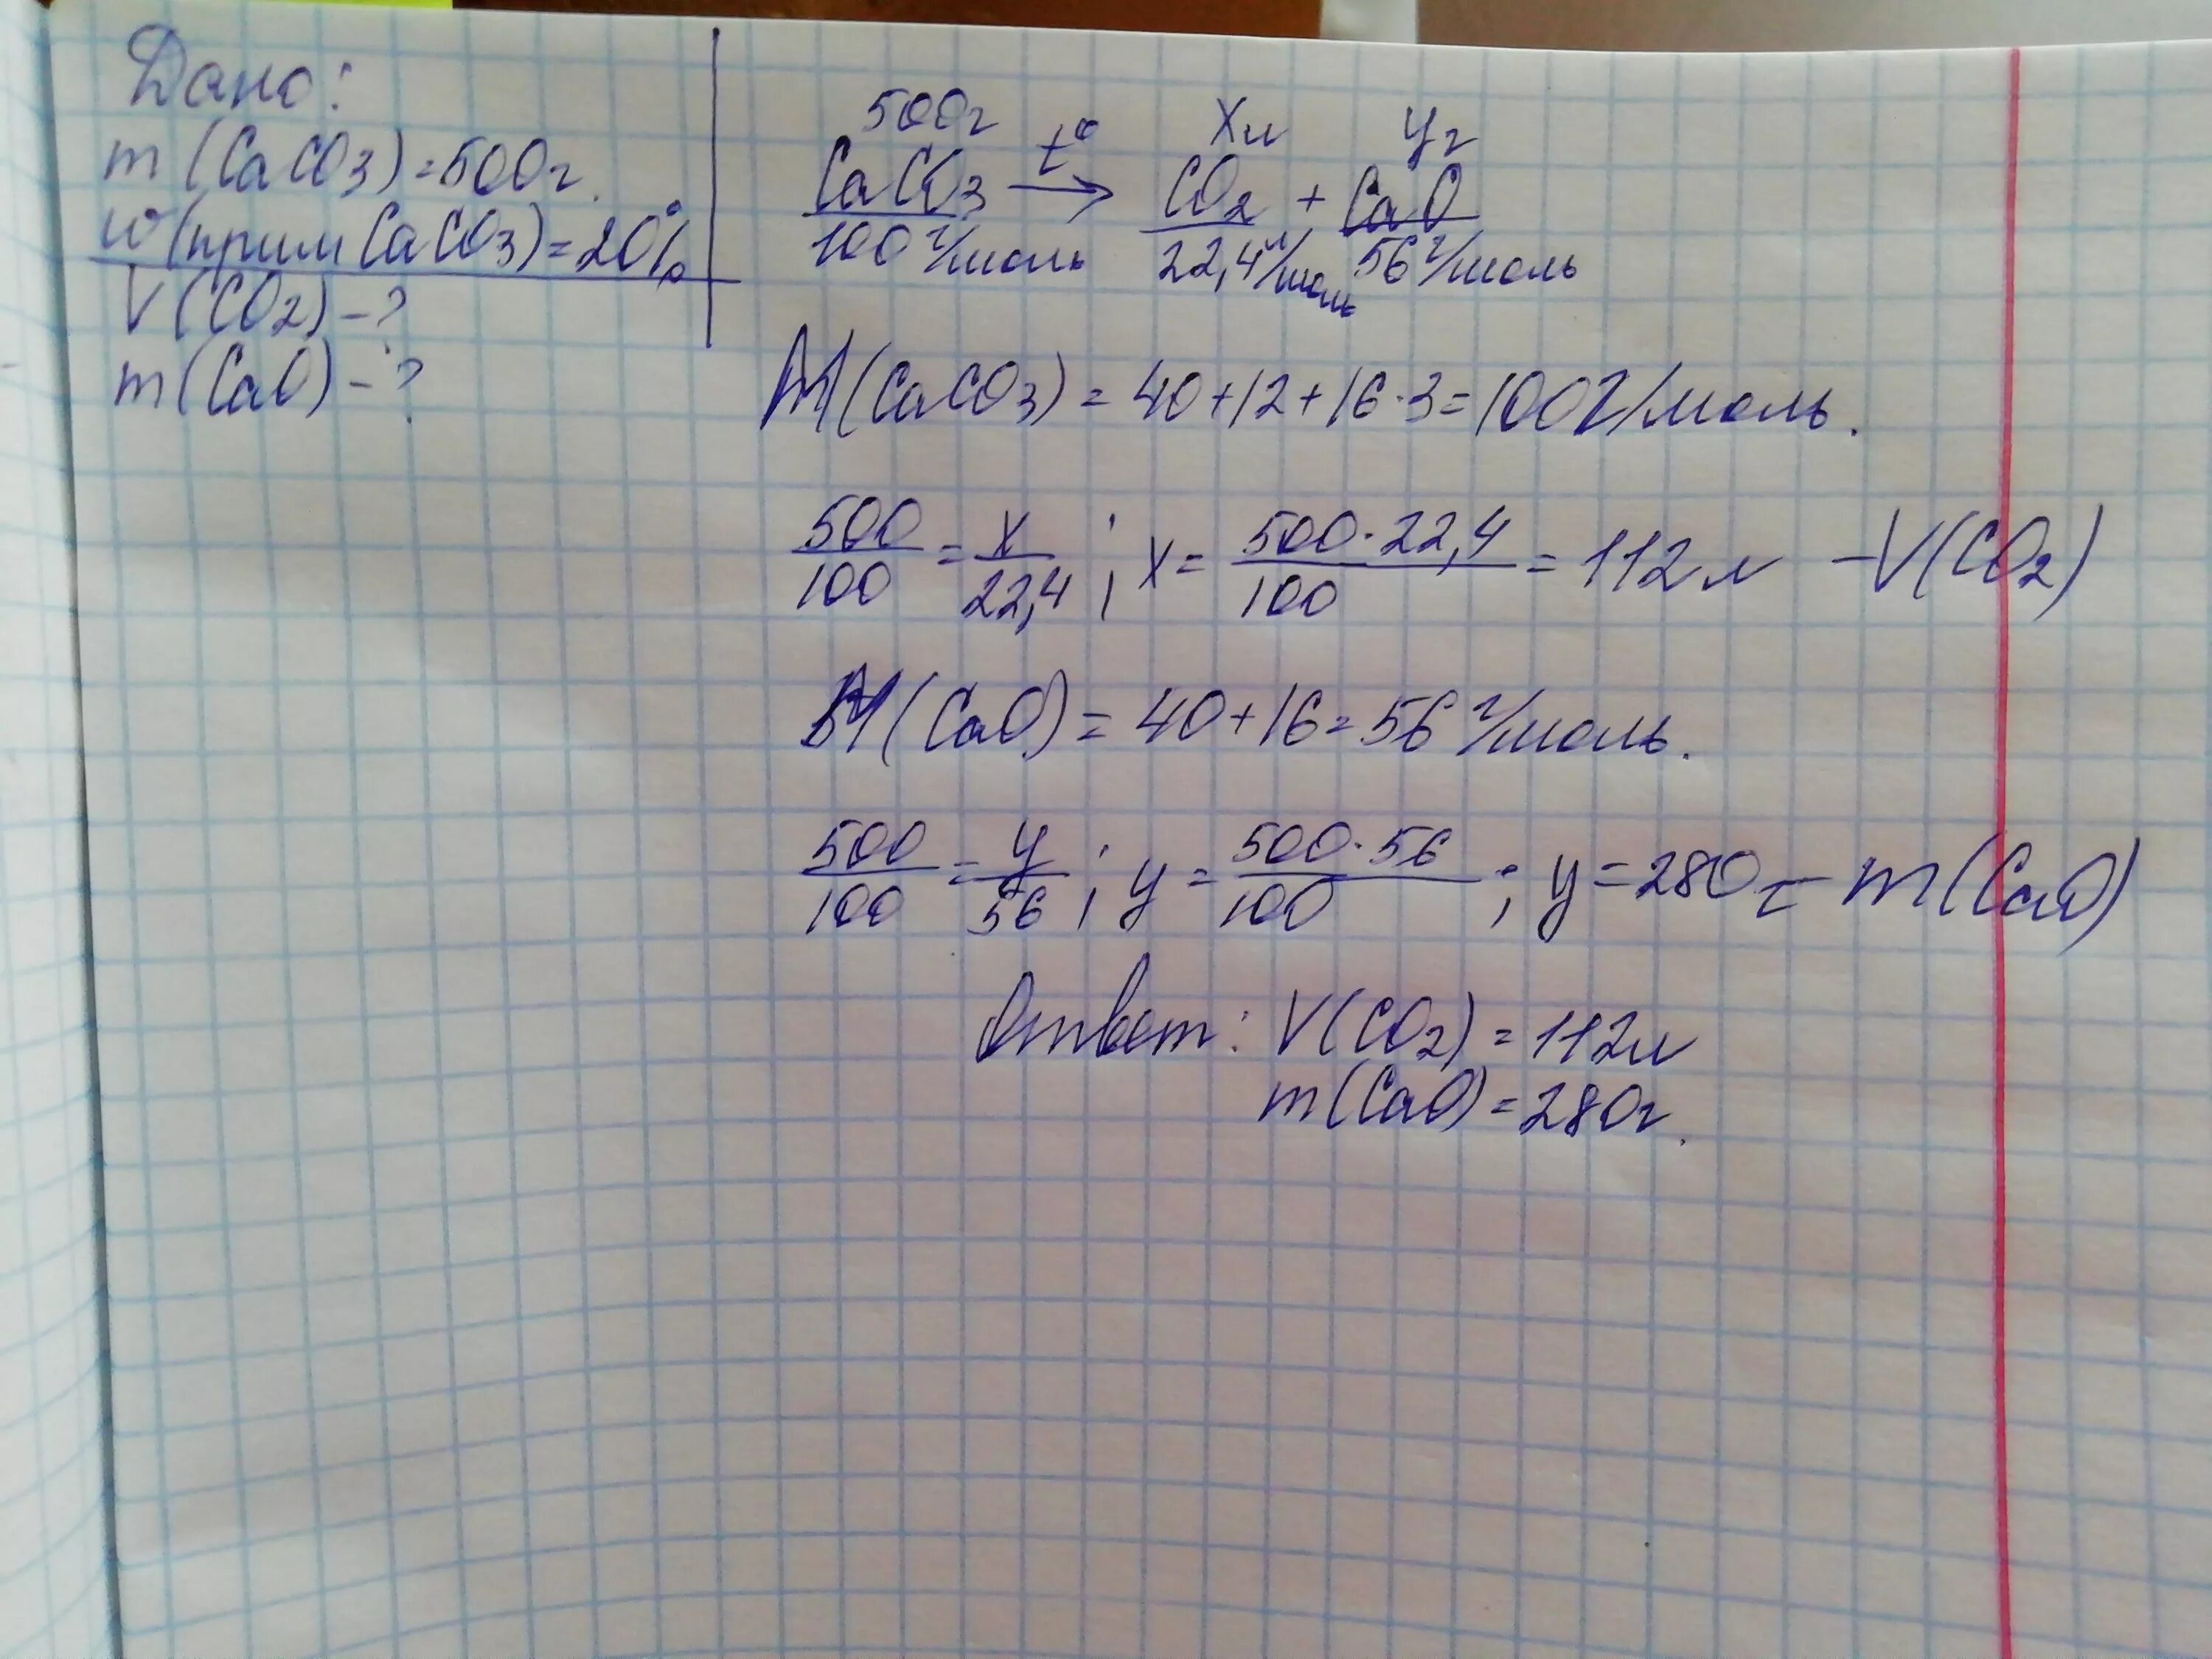 Дано:
m(CaCO3)=500г.
w(прим CaCO3)=20%
V(CO2)-?
m(CaO)-?
500г xл yг
CaCO3 t° → CO2 + CaO
100 г/моль 22,4 л/моль 56 г/моль
M(CaCO3) = 40+12+16·3=100г/моль.
500/100 = x/22,4 ; x= 500·22,4/100 = 112 л – V(CO2)
M(CaO) = 40+16=56 г/моль.
500/100 = y/56 ; y = 500·56/100 ; y=280г – m(CaO)
Ответ: V(CO2) = 112л
m(CaO)=280г.